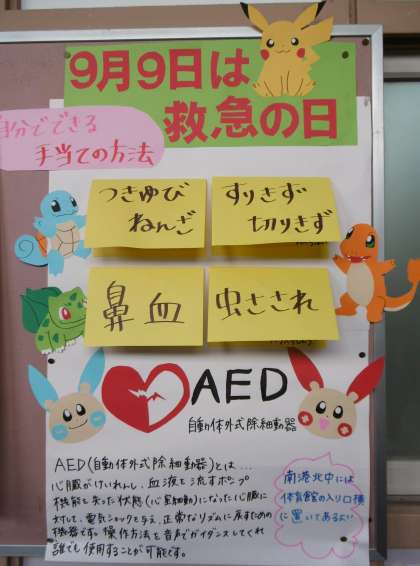 9月9日は
救急の日
自分でできる
手当ての方法
つきゆび
ねんざ
すりきず
切りきず
鼻血
虫さされ
AED
自動体外式除細動器
AED(自動体外式除細動器)とは...
心臓がけいれんし、血液を流すポンプ
機能を失った状態(心室細動)になった心臓に
対して、電気ショックを与え、正常なリズムに戻すための
機器です。操作方法を音声でガイダンスしてくれ
誰でも使用することが可能です。
南港北中には
体育館の入り口横
に置いてあるよ。